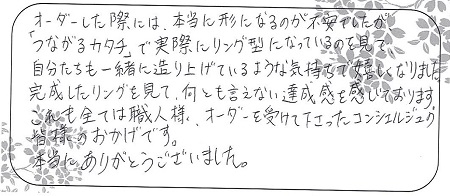 オーダーした際には、本当に形になるのが不安でしたが
「つながるカタチ」で実際にリング型になっているのを見て、
自分たちも一緒に造り上げているような気持ちで嬉しくなりました
完成したリングを見て、何とも言えない達成感を感じております。
これも全ては職人様、オーダーを受けて下さったコンシェルジュの
皆様のおかげです。
本当にありがとうございました。